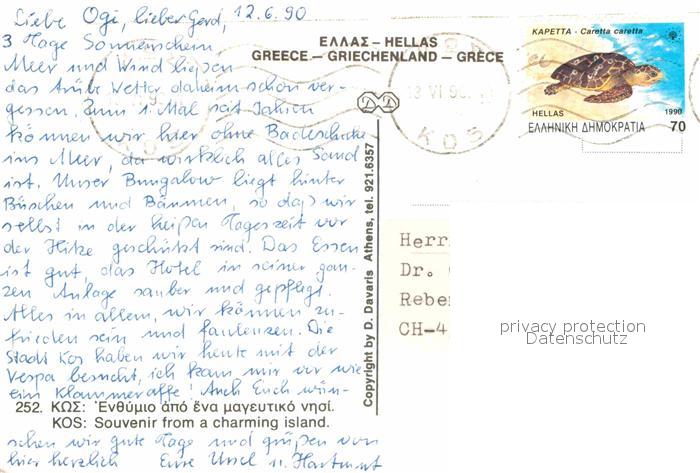 Liebe Ogi, lieber Gerd, 12.6.90
3 Tage Sonnenschein,
Meer und Wind ließen
das trübe Wetter daheim schon ver-
gessen. Zum 1. Mal seit Jahren
können wir hier ohne Badeschuhe
ins Meer, da wirklich alles Sand
ist. Unser Bungalow liegt hinter
Büschen und Bäumen, so daß wir
selbst in der heißen Tageszeit vor
der Hitze geschützt sind. Das Essen
ist gut, das Hotel in seiner gan-
zen Anlage sauber und gepflegt.
Alles in allem, wir können zu-
frieden sein und faulenzen. Die
Stadt Kos haben wir heute mit der
Vespa besucht, ich kam mir vor wie
ein Klammeraffe! Auch Euch wün-
252. ΚΩΣ: Ἐνθύμιο ἀπό ἕνα μαγευτικό νησί.
KOS: Souvenir from a charming island.
schen wir gute Tage und grüßen von
hier herzlich Eure Ursel u. Hartmut
ΕΛΛΑΣ – HELLAS
GREECE – GRIECHENLAND – GRÈCE
Copyright by D. Davaris Athens, tel. 921.6357
13 VI 90
ΚΩΣ
ΚΑΡΕΤΤΑ - Caretta caretta
HELLAS 1990
ΕΛΛΗΝΙΚΗ ΔΗΜΟΚΡΑΤΙΑ 70
Herr
Dr.
Rebe
CH-4
privacy protection
Datenschutz